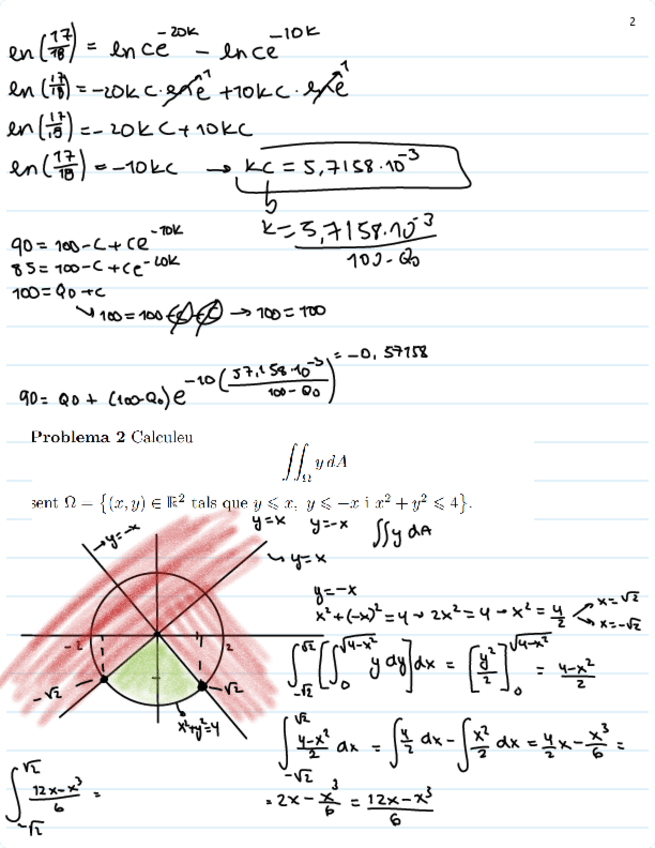 2
en(17/18) = ln ce^-20k - ln ce^-10k
en(17/18) = -20k c · ln e^1 + 10k c · ln e^1
en(17/18) = -20kc + 10kc
en(17/18) = -10kc → kc = 5,7158·10^-3
k = 5,7158·10^-3 / 100 - Q0
90 = 100 - C + Ce^-10k
85 = 100 - C + Ce^-20k
100 = Q0 + C
100 = 100 → 100 = 100
90 = Q0 + (100 - Q0) e^-10(57,158·10^-3 / 100 - Q0) = -0,57158
Problema 2 Calculeu
∬_Ω y dA
sent Ω = {(x, y) ∈ ℝ² tals que y ⩽ x, y ⩽ -x i x² + y² ⩽ 4}.
y=x y=-x ∬y dA
y=-x
y=x
-2 2
-√2 -√2
x²+y²=4
y=-x
x²+(-x)²=4 → 2x²=4 → x²=4/2 x=√2
x=-√2
∫_-√2^√2 [∫_0^√(4-x²) y dy] dx = [y²/2]_0^√(4-x²) = 4-x²/2
∫_-√2^√2 4-x²/2 dx = ∫4/2 dx - ∫x²/2 dx = 4/2 x - x³/6 =
= 2x - x³/6 = 12x-x³/6
∫_-√2^√2 12x-x³/6 =